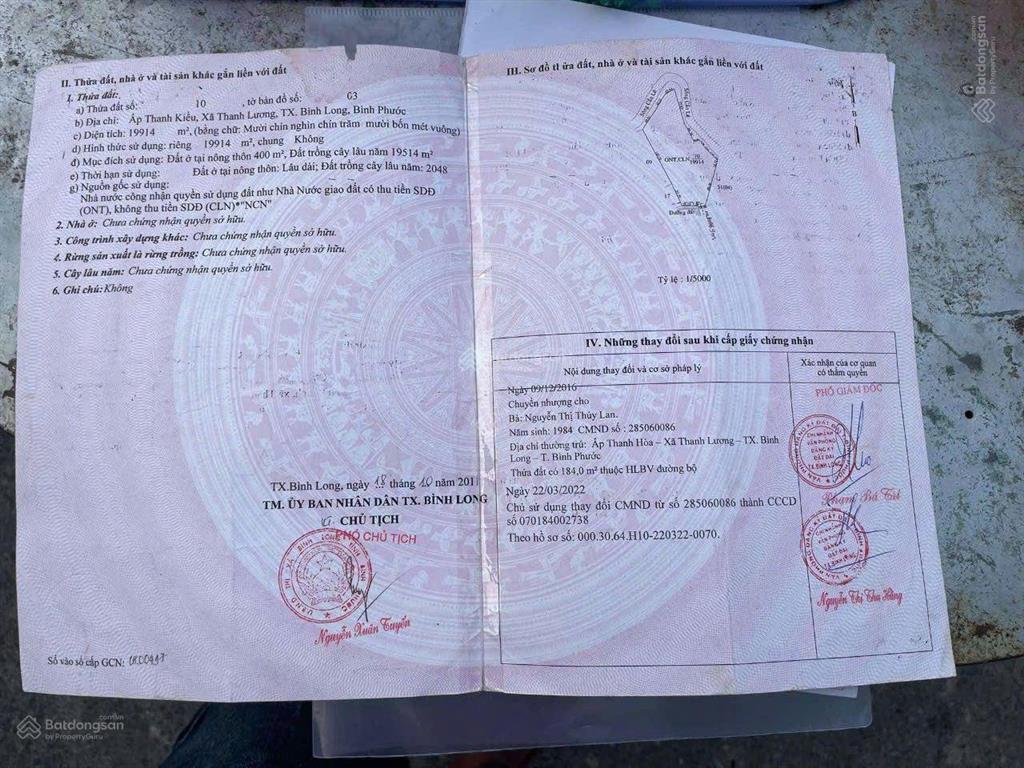 II. Thửa đất, nhà ở và tài sản khác gắn liền với đất
1. Thửa đất:
a) Thửa đất số: 10 , tờ bản đồ số: 03
b) Địa chỉ: Ấp Thanh Kiều, Xã Thanh Lương, TX. Bình Long, Bình Phước
c) Diện tích: 19914 m², (bằng chữ: Mười chín nghìn chín trăm mười bốn mét vuông)
d) Hình thức sử dụng: riêng 19914 m², chung Không
đ) Mục đích sử dụng: Đất ở tại nông thôn 400 m², Đất trồng cây lâu năm 19514 m²
e) Thời hạn sử dụng: Đất ở tại nông thôn: Lâu dài; Đất trồng cây lâu năm: 2048
g) Nguồn gốc sử dụng:
Nhà nước công nhận quyền sử dụng đất như Nhà Nước giao đất có thu tiền SDĐ
(ONT), không thu tiền SDĐ (CLN)*"NCN"
2. Nhà ở: Chưa chứng nhận quyền sở hữu.
3. Công trình xây dựng khác: Chưa chứng nhận quyền sở hữu.
4. Rừng sản xuất là rừng trồng: Chưa chứng nhận quyền sở hữu.
5. Cây lâu năm: Chưa chứng nhận quyền sở hữu.
6. Ghi chú: Không
TX.Bình Long, ngày 18 tháng 10 năm 201
TM. ỦY BAN NHÂN DÂN TX. BÌNH LONG
CHỦ TỊCH
PHÓ CHỦ TỊCH
Nguyễn Xuân Tuyến
Số vào sổ cấp GCN:
III. Sơ đồ thửa đất, nhà ở và tài sản khác gắn liền với đất
ONT,CLN
10
19914
09
17
Đường đất
Tỷ lệ : 1/5000
IV. Những thay đổi sau khi cấp giấy chứng nhận
Nội dung thay đổi và cơ sở pháp lý
Xác nhận của cơ quan
có thẩm quyền
Ngày 09/12/2016
Chuyển nhượng cho
Bà: Nguyễn Thị Thúy Lan.
Năm sinh: 1984 CMND số : 285060086
Địa chỉ thường trú: Ấp Thanh Hòa – Xã Thanh Lương – TX. Bình
Long – T. Bình Phước
Thửa đất có 184,0 m² thuộc HLBV đường bộ
PHÓ GIÁM ĐỐC
CHI NHÁNH
VĂN PHÒNG
ĐĂNG KÝ
ĐẤT ĐAI
TX.BÌNH LONG
Phạm Bá Tới
Ngày 22/03/2022
Chủ sử dụng thay đổi CMND từ số 285060086 thành CCCD
số 070184002738
Theo hồ sơ số: 000.30.64.H10-220322-0070.
CHI NHÁNH
VĂN PHÒNG
ĐĂNG KÝ
ĐẤT ĐAI
Nguyễn Thị Thu Hằng
Batdongsan
by PropertyGuru
Batdongsan
.com.vn
by PropertyGuru